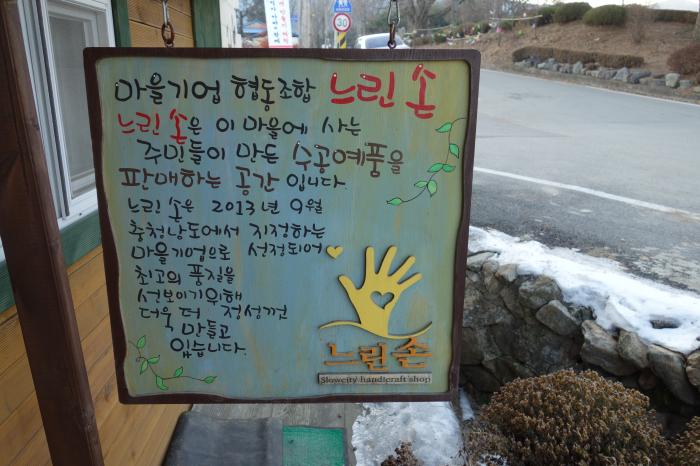 마을기업 협동조합 느린손
느린 손은 이 마을에 사는
주민들이 만든 수공예품을
판매하는 공간 입니다.
느린 손은 2013년 9월
충청남도에서 지정하는
마을기업으로 선정되어
최고의 품질을
선보이기위해
더욱 더 정성껏
만들고
있습니다.
느린손
Slowcity handicraft shop
30